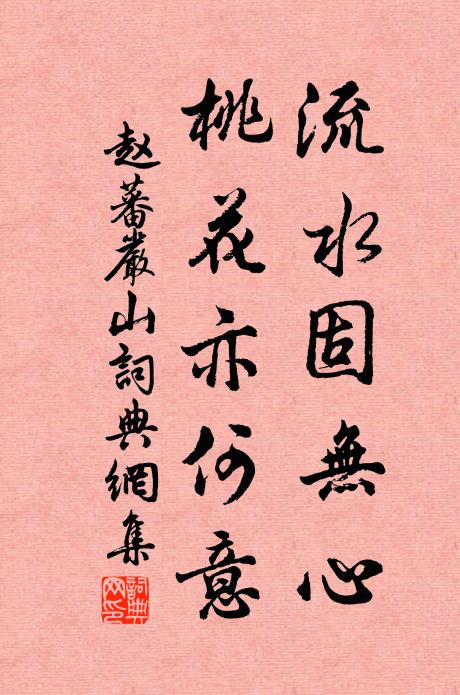 流水固無心
桃花亦何意
赵蕃嚴山詞典網集
詞典網印